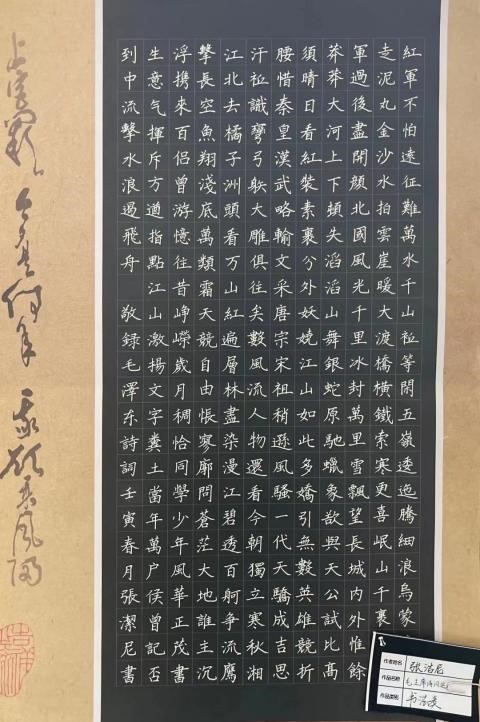 紅軍不怕遠征難萬水千山衹等閒五嶺逶迤騰細浪烏蒙
走泥丸金沙水拍雲崖暖大渡橋橫鐵索寒更喜岷山千裏
軍過後盡開顏北國風光千里冰封萬里雪飄望長城內外惟餘
莽莽大河上下頓失滔滔山舞銀蛇原馳蠟象欲與天公試比高
須晴日看紅裝素裹分外妖嬈江山如此多嬌引無數英雄競折
腰惜秦皇漢武略輸文采唐宗宋祖稍遜風騷一代天驕成吉思
汗衹識彎弓射大雕俱往矣數風流人物還看今朝獨立寒秋湘
江北去橘子洲頭看万山紅遍層林盡染漫江碧透百舸争流鷹
擊長空魚翔淺底萬類霜天競自由悵寥廓問蒼茫大地誰主沉
浮携來百侣曾游憶往昔崢嶸歲月稠恰同學少年風華正茂書
生意气揮斥方遒指點江山激揚文字糞土當年萬户侯曾記否
到中流擊水浪遏飛舟 敬録毛澤东詩詞壬寅春月張潔尼書
作者姓名 张洁尼
作品名称 毛主席诗词
作品类别 书法类